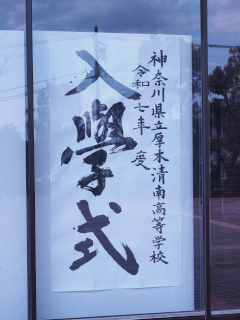 神奈川県立厚木清南高等学校
令和七年度
入學式